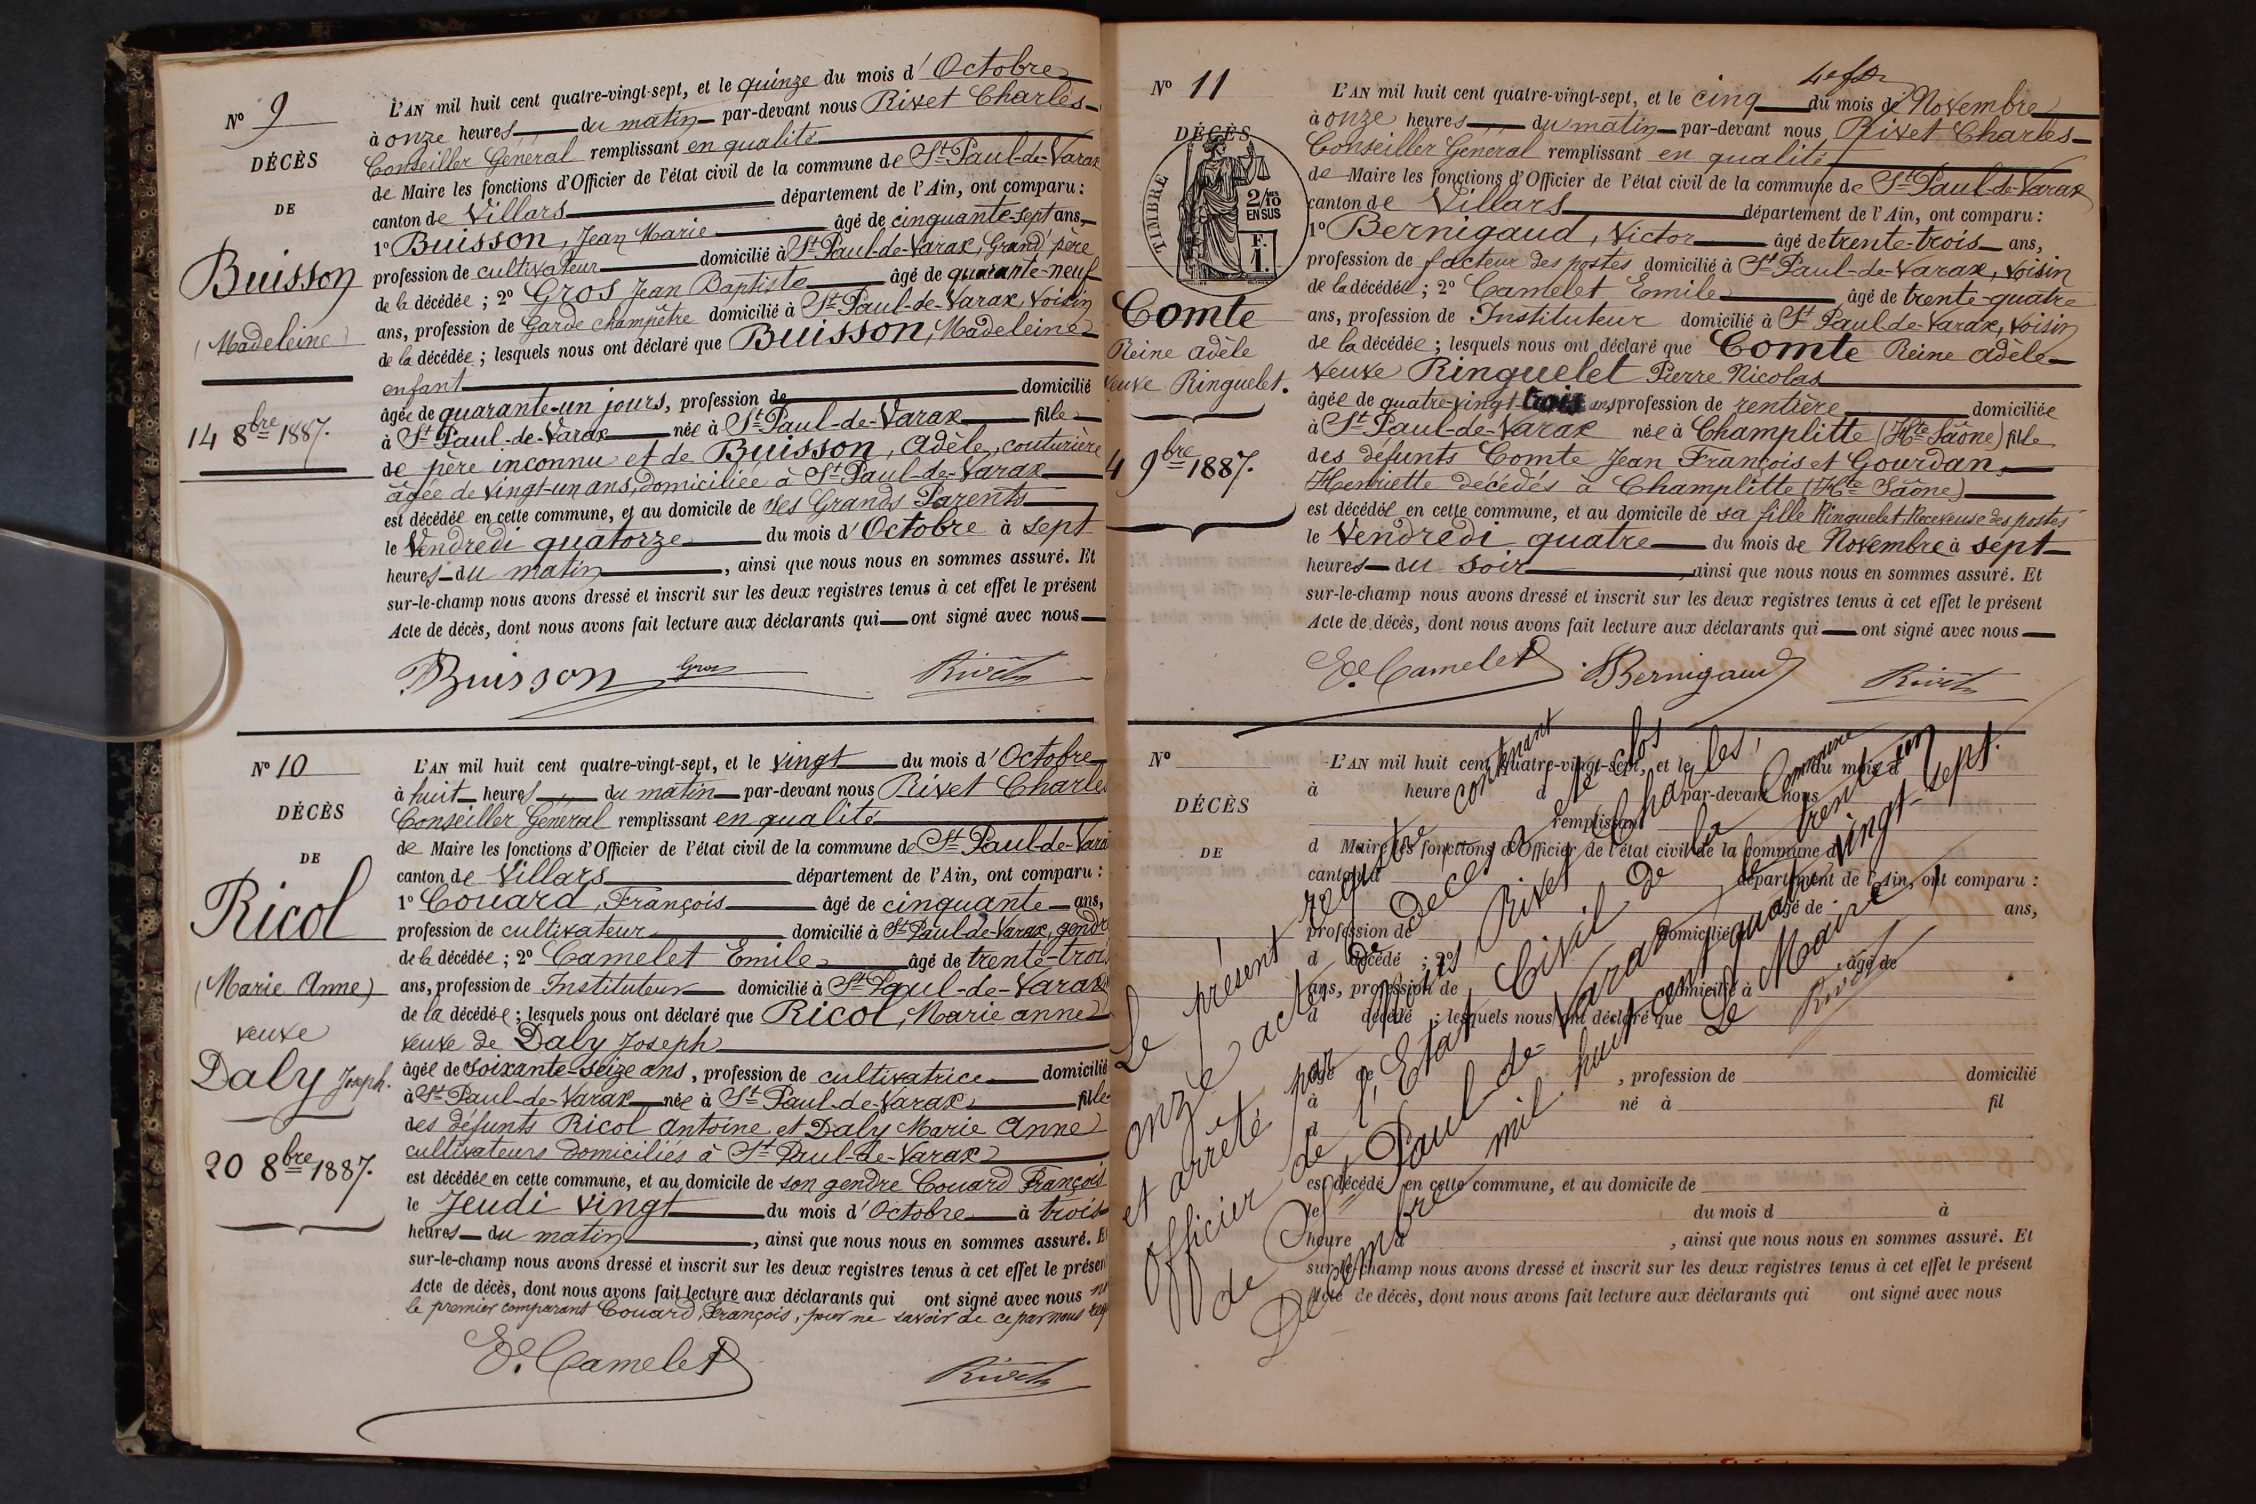 N° 9
DÉCÈS
DE
Buisson
(Madeleine)
14 8bre 1887.
L'AN mil huit cent quatre-vingt-sept, et le quinze du mois d'Octobre
à onze heures du matin par-devant nous Rivet Charles
Conseiller Général remplissant en qualité
de Maire les fonctions d'Officier de l'état civil de la commune de St Paul-de-Varax
canton de Villars département de l'Ain, ont comparu :
1° Buisson, Jean Marie âgé de cinquante-sept ans,
profession de cultivateur domicilié à St Paul-de-Varax, Grand'père
de la décédée ; 2° Gros Jean Baptiste âgé de quarante-neuf
ans, profession de Garde champêtre domicilié à St Paul-de-Varax, Voisin
de la décédée ; lesquels nous ont déclaré que Buisson, Madeleine
enfant
âgée de quarante-un jours, profession de domicilié
à St Paul-de-Varax née à St Paul-de-Varax fille
de père inconnu et de Buisson, Adèle, couturière
âgée de vingt-un ans, domiciliée à St Paul-de-Varax
est décédée en cette commune, et au domicile de ses Grands Parents
le Vendredi quatorze du mois d'Octobre à sept
heures du matin, ainsi que nous nous en sommes assuré. Et
sur-le-champ nous avons dressé et inscrit sur les deux registres tenus à cet effet le présent
Acte de décès, dont nous avons fait lecture aux déclarants qui ont signé avec nous
Buisson Gros Rivet
N° 10
DÉCÈS
DE
Ricol
(Marie Anne)
veuve
Daly Joseph.
20 8bre 1887.
L'AN mil huit cent quatre-vingt-sept, et le vingt du mois d'Octobre
à huit heures du matin par-devant nous Rivet Charles
Conseiller Général remplissant en qualité
de Maire les fonctions d'Officier de l'état civil de la commune de St Paul-de-Vara
canton de Villars département de l'Ain, ont comparu :
1° Couard, François âgé de cinquante ans,
profession de cultivateur domicilié à St Paul-de-Varax, gendre
de la décédée ; 2° Camelet Emile âgé de trente-trois
ans, profession de Instituteur domicilié à St Paul-de-Varax
de la décédée ; lesquels nous ont déclaré que Ricol, Marie anne
veuve de Daly Joseph
âgée de soixante-seize ans, profession de cultivatrice domicilié
à St Paul-de-Varax née à St Paul-de-Varax fille
des défunts Ricol antoine et Daly Marie Anne
cultivateurs domiciliés à St Paul-de-Varax
est décédée en cette commune, et au domicile de son gendre Couard François
le Jeudi vingt du mois d'Octobre à trois
heures du matin, ainsi que nous nous en sommes assuré. E
sur-le-champ nous avons dressé et inscrit sur les deux registres tenus à cet effet le présen
Acte de décès, dont nous avons fait lecture aux déclarants qui ont signé avec nous
le premier comparant Couard, François, pour ne savoir de ce par nous
E. Camelet Rivet
N° 11
DÉCÈS
TIMBRE
2/10
EN SUS
F.
1.
Comte
Reine adèle
veuve Ringuelet.
4 9bre 1887.
L'AN mil huit cent quatre-vingt-sept, et le cinq du mois de Novembre
à onze heures du matin par-devant nous Rivet Charles
Conseiller General remplissant en qualité
de Maire les fonctions d'Officier de l'état civil de la commune de St Paul-de-Varax
canton de Villars département de l'Ain, ont comparu :
1° Bernigaud, Victor âgé de trente-trois ans,
profession de facteur des postes domicilié à St Paul-de-Varax, voisin
de la décédée ; 2° Camelet Emile âgé de trente-quatre
ans, profession de Instituteur domicilié à St Paul-de-Varax, voisin
de la décédée ; lesquels nous ont déclaré que Comte Reine adèle
veuve Ringuelet Pierre Nicolas
âgée de quatre-vingt trois ans, profession de rentière domiciliée
à St Paul-de-Varax née à Champlitte (Hte Saône) fille
des défunts Comte Jean François et Gourdan
Henriette decédés à Champlitte (Hte Saône)
est décédée en cette commune, et au domicile de sa fille Ringuelet Receveuse des postes
le Vendredi quatre du mois de Novembre à sept
heures du soir, ainsi que nous nous en sommes assuré. Et
sur-le-champ nous avons dressé et inscrit sur les deux registres tenus à cet effet le présent
Acte de décès, dont nous avons fait lecture aux déclarants qui ont signé avec nous
E. Camelet Bernigaud Rivet
N°
DÉCÈS
DE
L'AN mil huit cent quatre-vingt-sept, et le du mois d
à heure d par-devant nous
remplissant
d Maire les fonctions d'Officier de l'état civil de la commune d
canton d département de l'Ain, ont comparu :
âgé de ans,
profession de domicilié à
d décédé ; 2° âgé de
ans, profession de domicilié à
d décédé ; lesquels nous ont déclaré que
âgé de , profession de domicilié
à né à fil
d
est décédé en cette commune, et au domicile de
le du mois d à
heure d , ainsi que nous nous en sommes assuré. Et
sur-le-champ nous avons dressé et inscrit sur les deux registres tenus à cet effet le présent
Acte de décès, dont nous avons fait lecture aux déclarants qui ont signé avec nous
Le présent registre contenant
onze actes de Décès a été clos
et arrêté par Nous Rivet Charles,
Officier de l'Etat Civil de la Commune
de St Paul-de-Varax le trente-un
Décembre mil huit cent quatre vingt-sept.
Le Maire
Rivet